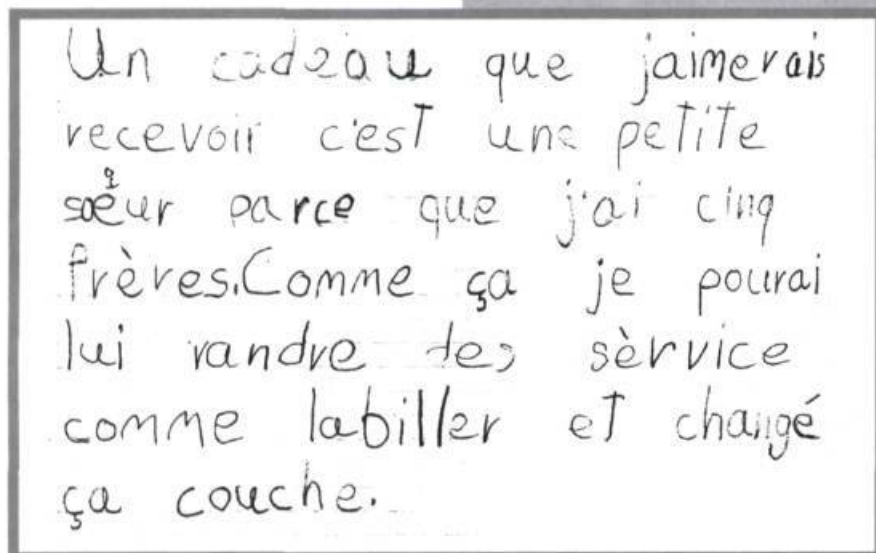 Un cadeau que jaimerais
recevoir c'est une petite
sœur parce que j'ai cinq
frères.Comme ça je pourai
lui randre des sèrvice
comme labiller et changé
ça couche.